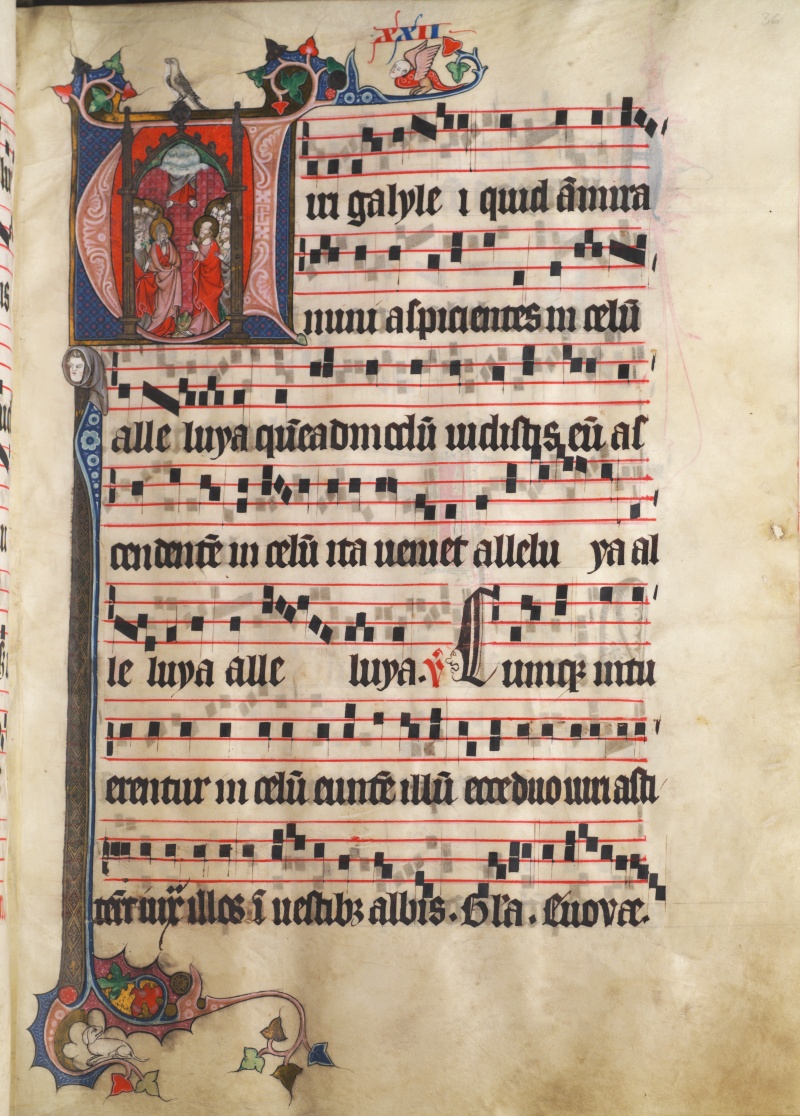 XXII
36
Uiri galyle i quid āmira
mini aspicientes in celū
alle luya quēadm celū uidistis eū as
cendentē in celū ita ueniet allelu ya al
le luya alle luya. V Cumq intu
erentur in celū euntē illū ecce duo uiri asti
illos ī uestibꝫ albis. Gl'a. Euovae.